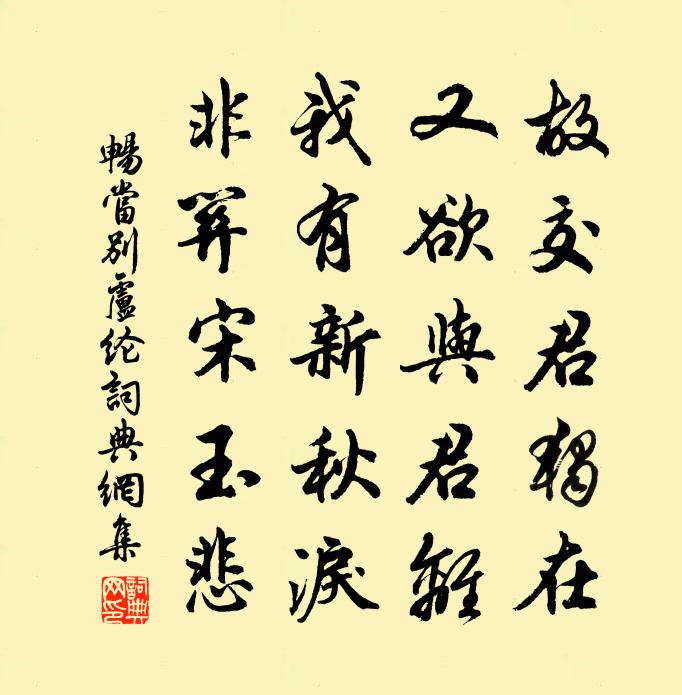 故交君獨在
又欲與君離
我有新秋淚
非關宋玉悲
暢當別盧纶詞典網集
詞典網印